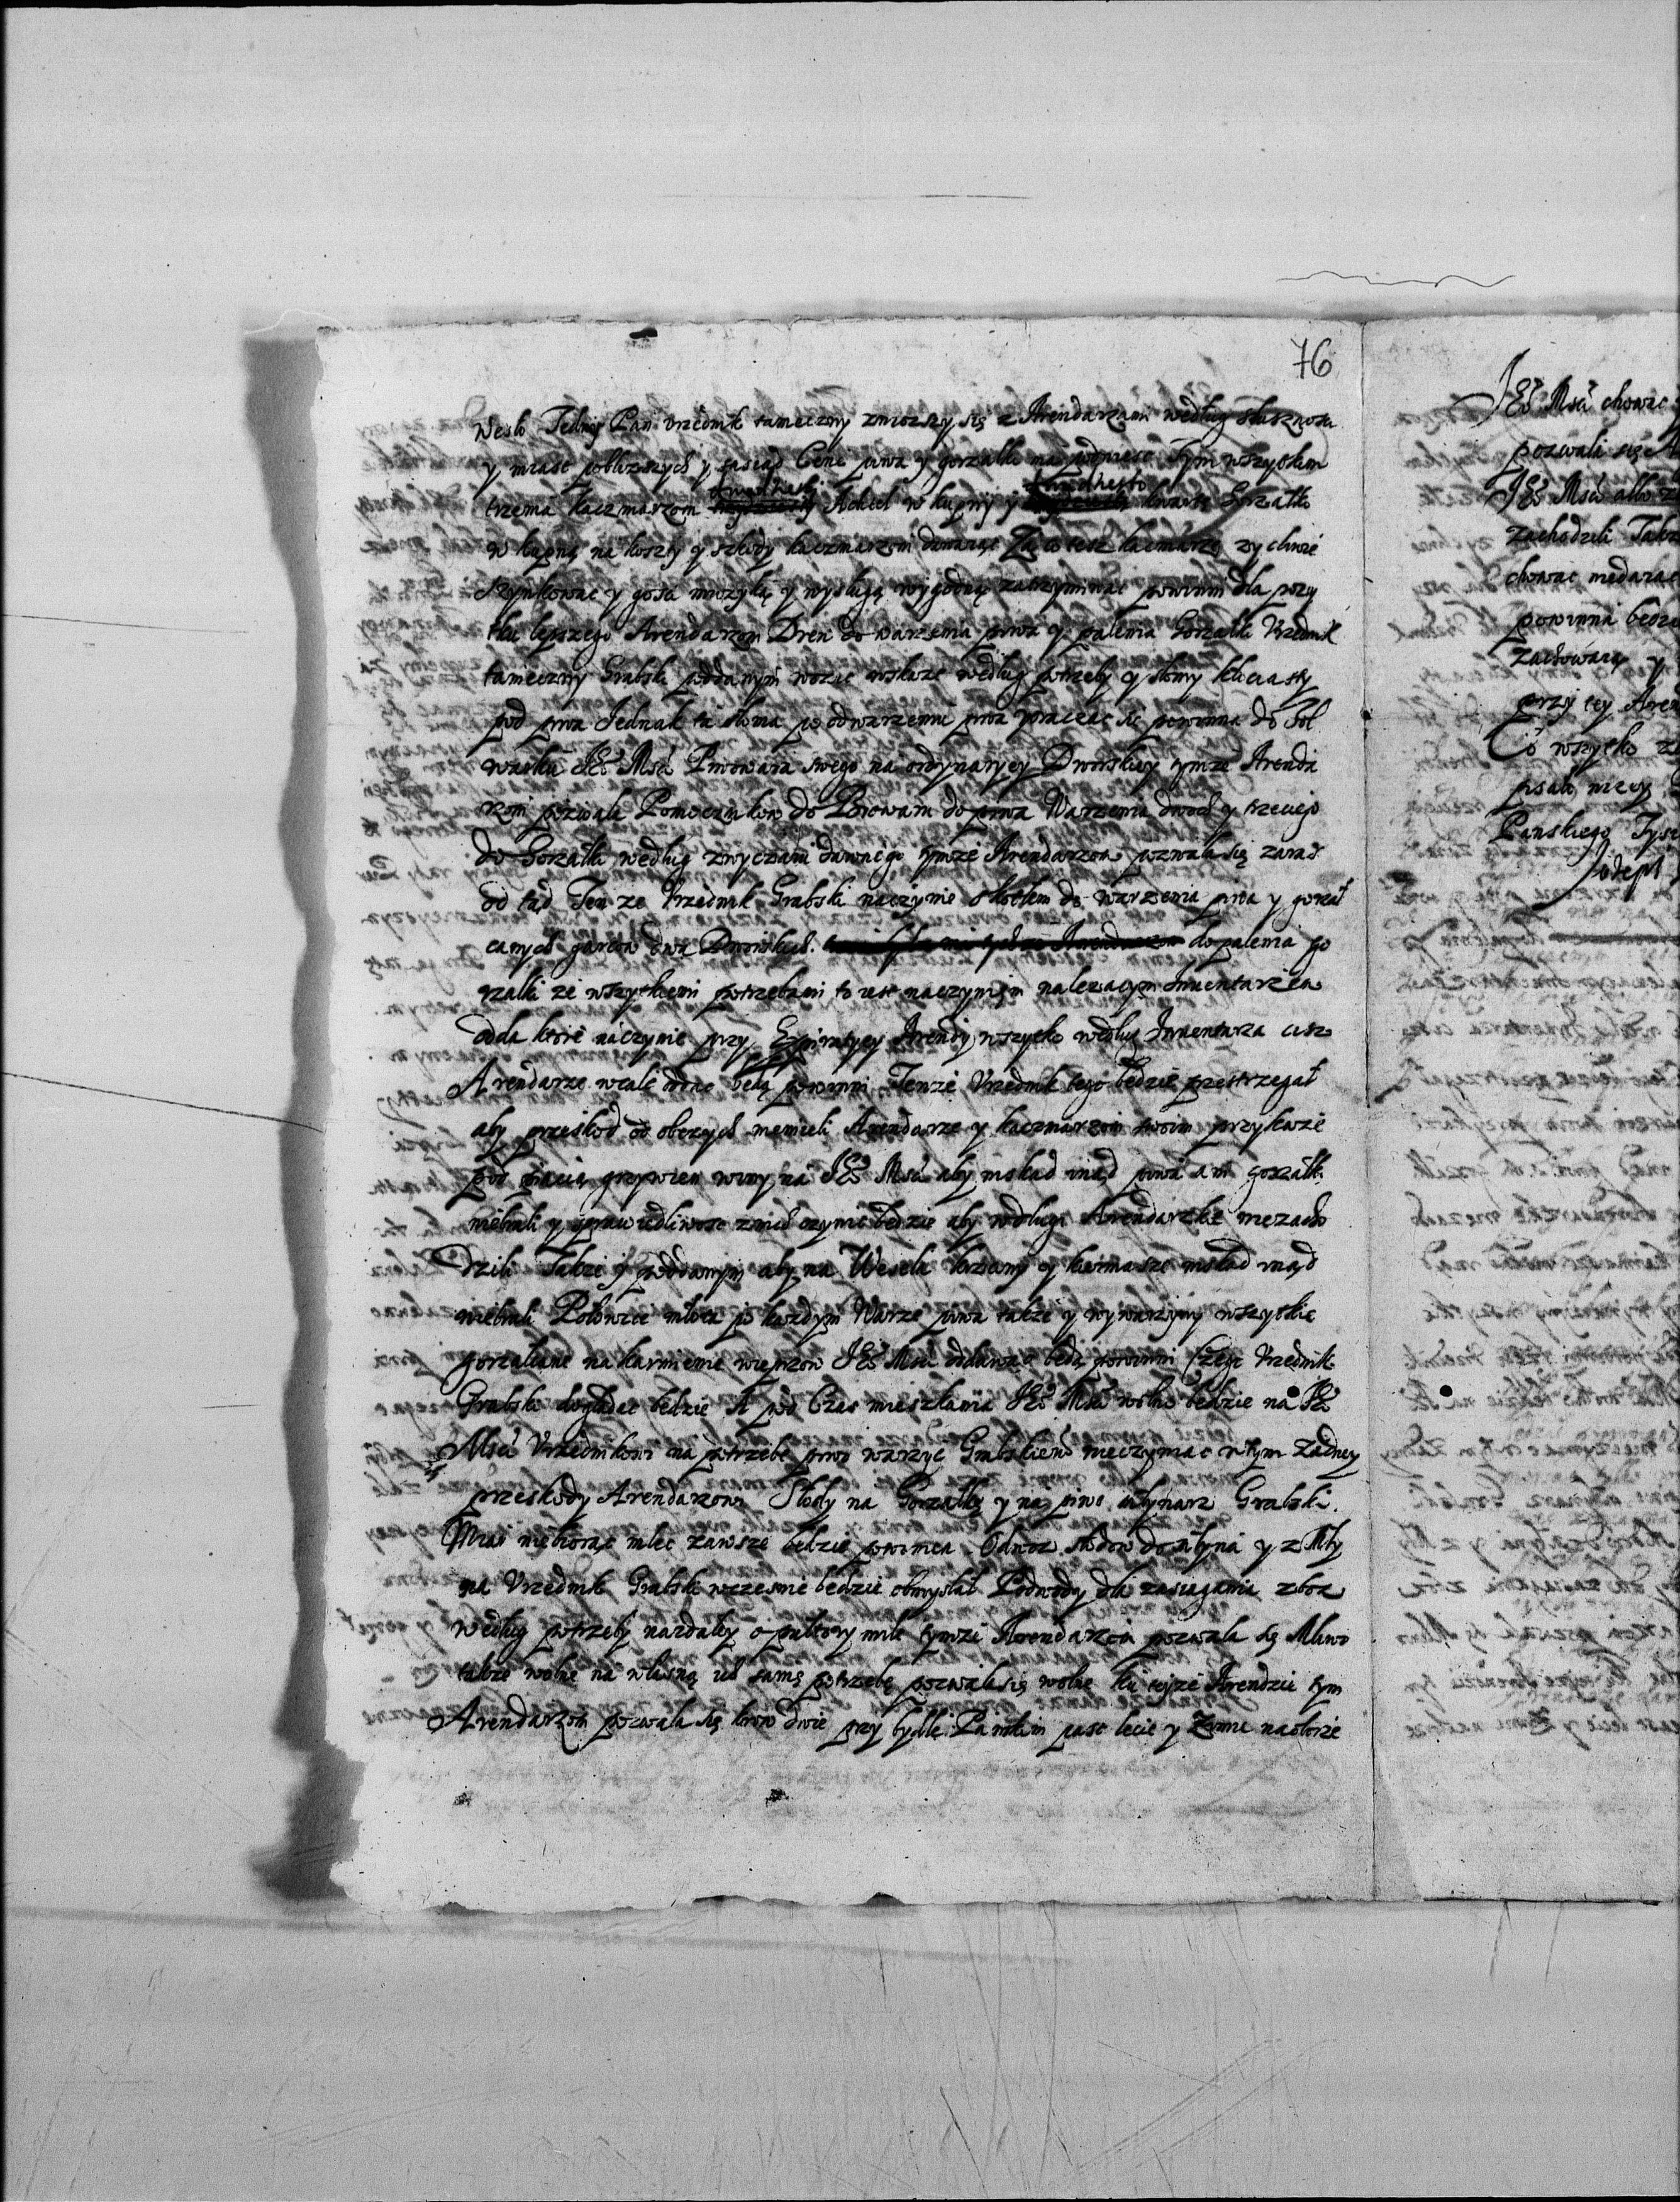 76
wesło Jednej Pan Urzednik tameczny zniozszy się z Arendarzami według słusznosci
y miast pobliszych y sasiad Cene piwa y gorzałki ma podniesc Tym wszytkim
trzema kaczmarzom Achtel w kupny y kwarte Gorzałki
w kupną na koszty y szkody kaczmarzom dawaiąc Za co tesz kaczmarze zyczliwie
szynkowac y goscia muzyką y wysługą wygodną zatrzymiwac powinni dla pozy
tku lepszego Arendarzom Drew do warzenia piwa y palenia Gorzałki Urzednik
tameczny Grabski poddanym wozic wskaze według potrzeby y słomy kłuciasty
pod piwa Jednak ta słoma po odwarzeniu piwa wracac się powinna do fol
warku JEo Msci Piwowara swego na ordynaryey Dworskiey tymze Arenda
rzom pozwala Pomocznikow do Browaru do piwa Warzenia dwoch y trzeciego
do Gorzałki według zwyczaiu dawnego tymze Arendarzom pozwala się zaraz
od tąd Ten ze Urzednik Grabski naczynie s kotłem do warzenia piwa y gorzał
canych garcow dwa Dworskich. do palenia go
rzałki ze wszytkiemi potrzebami to iest naczyniem nalezacym Inwentarzem
odda ktore naczynie przy Expiratyey Arendy wszytko według Inwentarza cisz
Arendarze wcale oddac będą powinni Tenze Urzednik tego będzie przestrzegał
aby przeskod od obczych niemieli Arendarze y kaczmarzom swoim przykaze
pod piącią grzywien winy na JEo Msci aby niskad inąd piwa ani gorzałki
niebrali y sprawiedliwosc z nich czynic będzie aby w długi Arendarzkie niezacho
dzili Takze y poddanym aby na Wesela krzciny y kiermasze niskad inąd
niebrali Połowice młota po kazdym Warze piwa takze y wywarzyny wszytkie
gorzałcane na karmienie wieprzow JEo Msci oddawac będą powinni czego Urzednik
Grabski doglądac będzie A pod Czas mieszkania JEo Msci wolno będzie na JEo
Msci Urzednikowi na potrzebe piwo warzyc Grabskiemu nieczyniac w tym zadney
przeskody Arendarzowi Słody na Gorzałkę y na piwo młynarz Grabski
Miar niebiorąc mlec zawsze będzie powinien Odwoz słodow do młyna y z Mły
na Urzednik Grabski wczesnie będzie obmyslał Podwody dla zaciągania zboz
według potrzeby nazdaley o pułtory mile tymze Arendarzom pozwala się Mliwo
takze wolne na własną ich samą potrzebę pozwala się wolne ku teyze Arendzie tym
Arendarzom pozwala się krow dwie przy bydle Panskim pasc lecie y Zimie na oborze
JEo Msci chowac
pozwali się
JEo Msci albo z
zachodzili Takz
chowac niedaiac
powinna będz
zachowaią y
przy tey Aren
Co wszytko z
psało niecy
Panskiego Tysi
Joseph